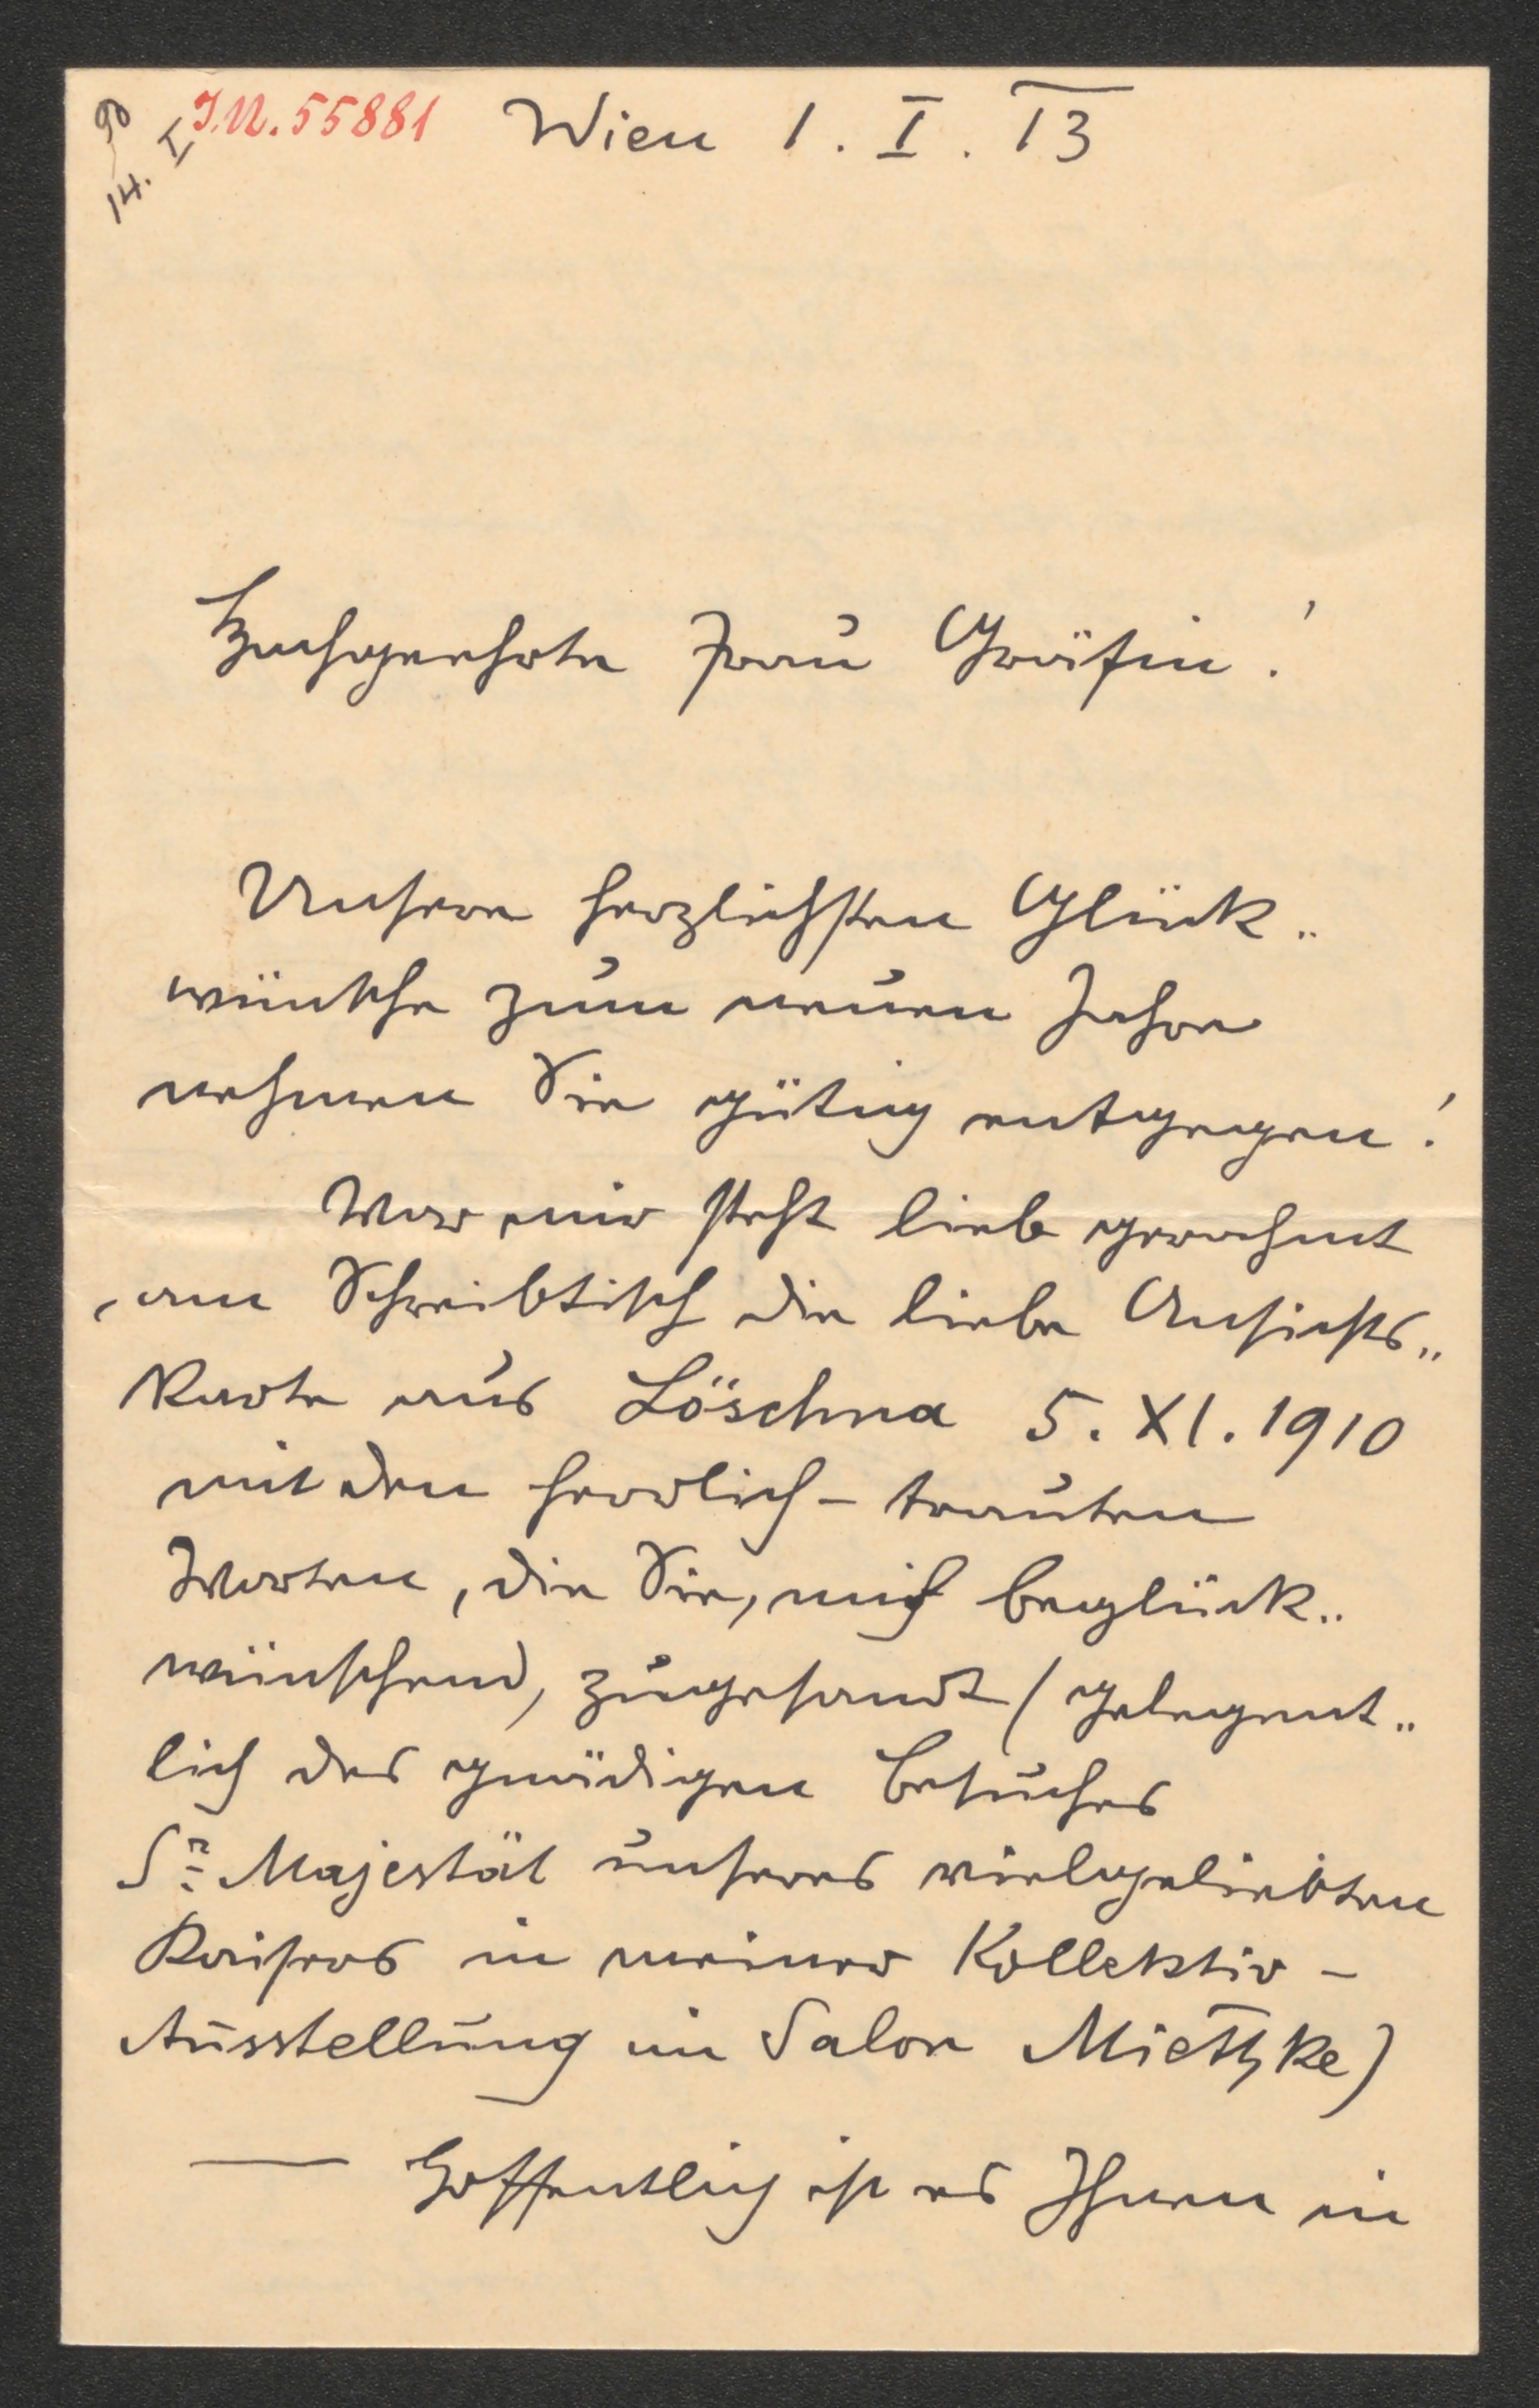 14. I 90
I.N. 55881 Wien 1. I. 13
Hochgeehrte Frau Gräfin!
Unsere herzlichsten Glück„
wünsche zum neuen Jahre
nehmen Sie gütig entgegen!
Vor mir steht lieb gewohnt
am Schreibtisch die liebe Ansichts„
karte aus Löschna 5. XI. 1910
mit den herrlich-trauten
Worten, die Sie, mich beglück„
wünschend, zugesandt (gelegent„
lich des gnädigen Besuches
Sr Majestät unseres vielgeliebten
Kaisers in meiner Kollektiv-
Ausstellung im Salon Miethke)
— Hoffentlich ist es Ihnen in